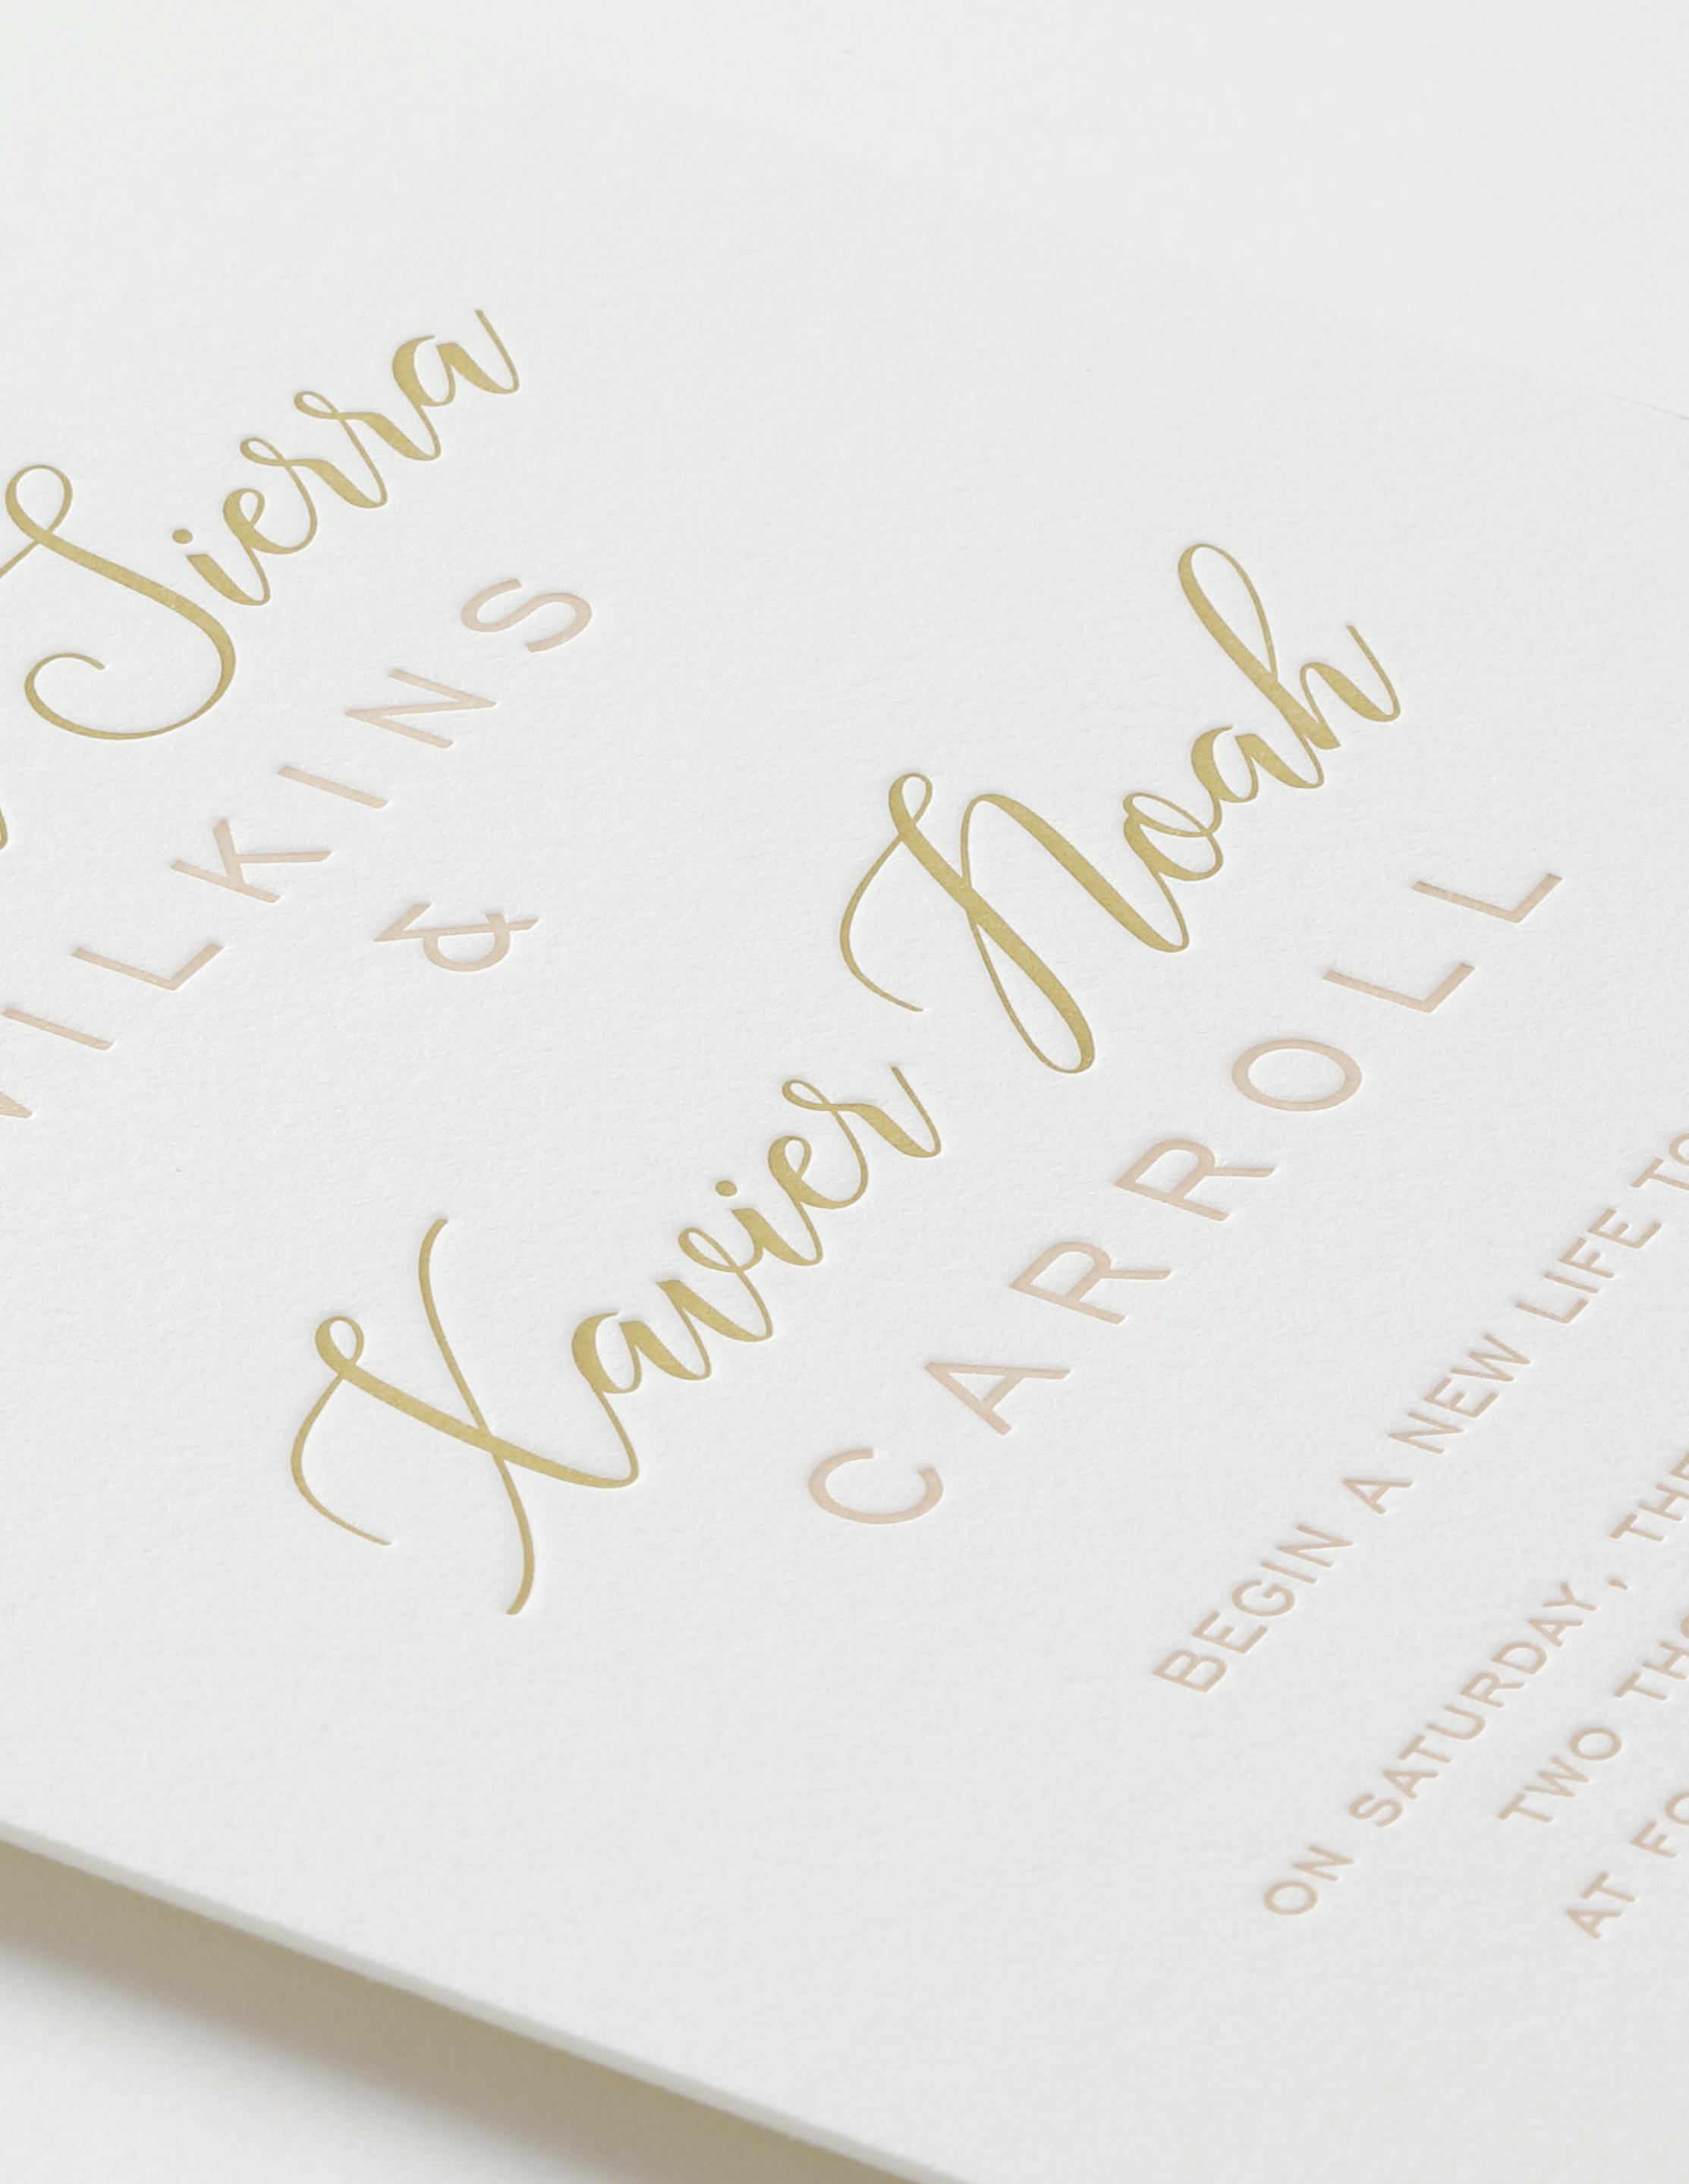 Sierra
WILKINS
&
Xavier Noah
CARROLL
BEGIN A NEW LIFE
ON SATURDAY, THE
TWO
AT